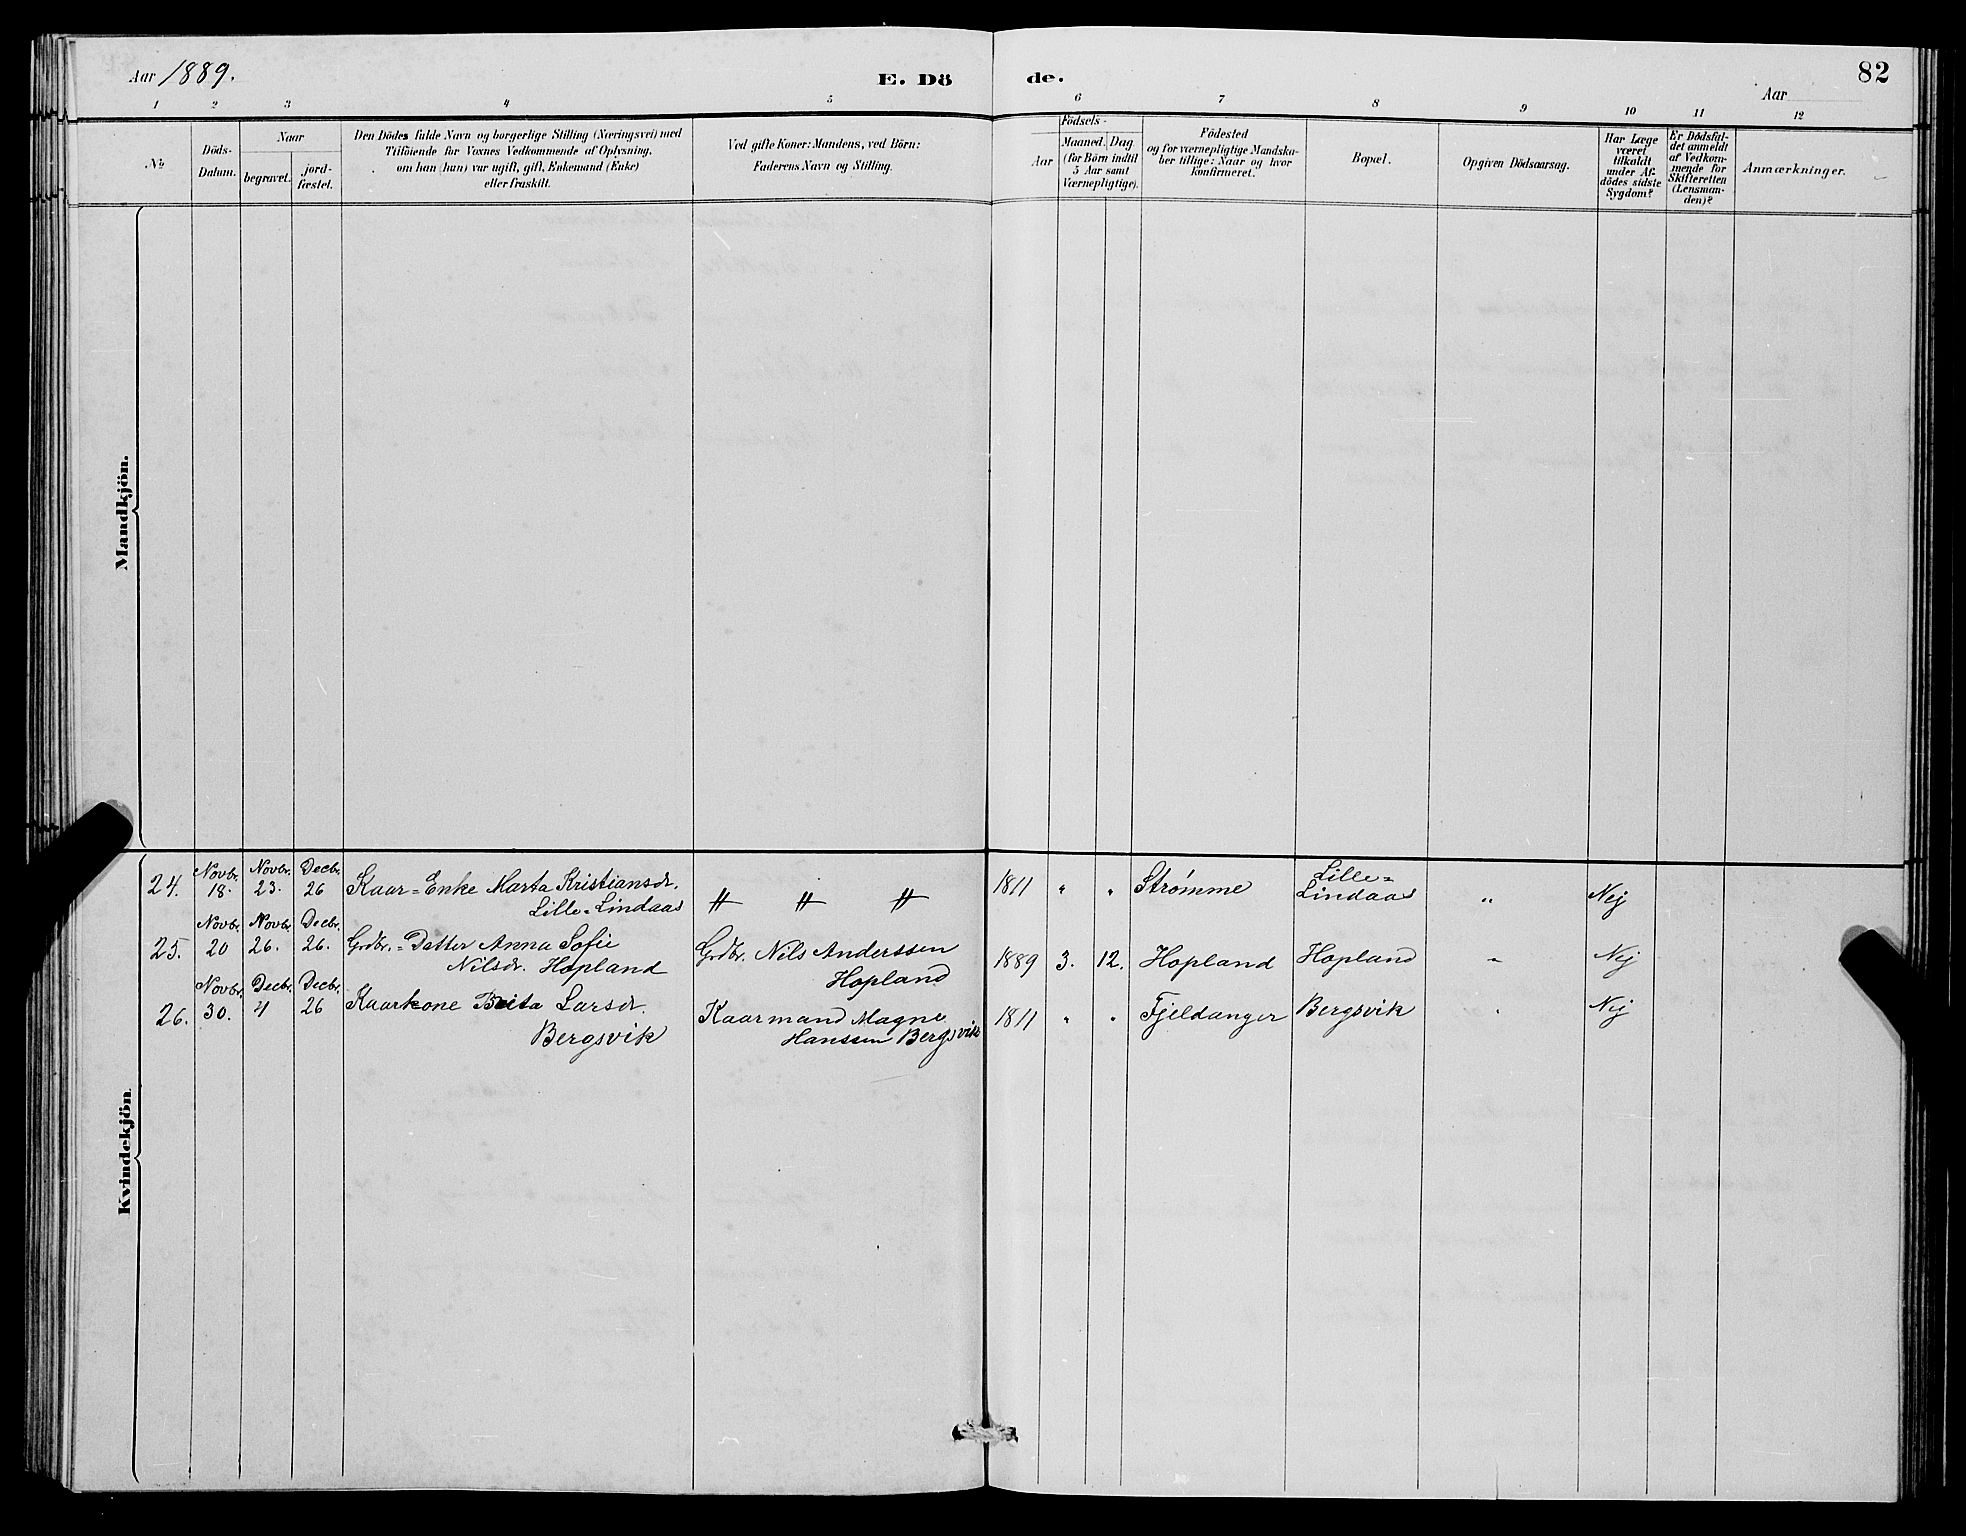 Aar 1889.
E. Dö de.
82
Aar
1 2 3 4 5 6 7 8 9 10 11 12
No
Döds-
Datum.
Naar
begravet.
jord-
fæstet.
Den Dödes fulde Navn og borgerlige Stilling (Næringsvei) med
Tilföiende for Voxnes Vedkommende af Oplysning,
om han (hun) var ugift, gift, Enkemand (Enke)
eller fraskilt.
Ved gifte Koner: Mandens, ved Börn:
Faderens Navn og Stilling.
Födsels-
Aar
Maaned. Dag
(for Börn indtil
5 Aar samt
Værnepligtige).
Födested
og for værnepligtige Mandska-
ber tillige: Naar og hvor
konfirmeret.
Bopæl.
Opgiven Dödsaarsag.
Har Læge
været
tilkaldt
under Af-
dödes sidste
Sygdom?
Er Dödsfal-
det anmeldt
af Vedkom-
mende for
Skifteretten
(Lensman-
den)?
Anmærkninger.
Mandkjön.
Kvindekjön
24. Novbr. 18. Novbr. 23. Decbr. 26 Kaar-Enke Marta Kristiansdr.
Lille-Lindaas
" " " 1811 " " Strømme Lille-
Lindaas " Nej
25. Novbr. 20 Novbr. 26. Decbr. 26. Grdbr.-Datter Anna Sofie
Nilsdr. Hopland
Grdbr. Nils Anderssen
Hopland
1889 3. 12. Hopland Hopland " Nej
26. Novbr. 30. Decbr. 4 Decbr. 26 Kaarkone Brita Larsdr.
Bergsvik
Kaarmand Magne
Hanssen Bergsvik
1811 " " Fjeldanger Bergsvik " Nej